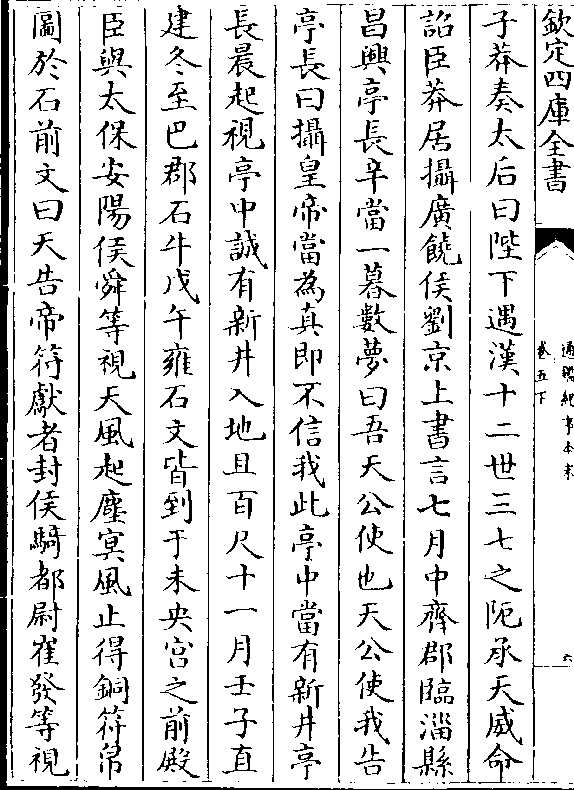 欽定四庫全書
通鑑紀事本末
卷五下
六
子莽奏太后曰陛下遇漢十二世三七之阨承天威命
詔臣莽居攝廣饒侯劉京上書言七月中齊郡臨淄縣
昌興亭長辛當一暮數夢曰吾天公使也天公使我告
亭長曰攝皇帝當為真即不信我此亭中當有新井亭
長晨起視亭中誠有新井入地且百尺十一月壬子直
建冬至巴郡石牛戊午雍石文皆到于未央宮之前殿
臣與太保安陽侯舜等視天風起塵冥風止得銅符帛
圖於石前文曰天告帝符獻者封侯騎都尉崔發等視